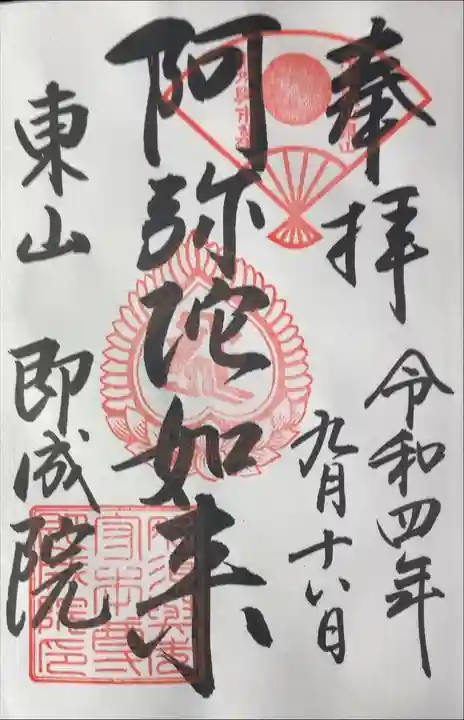 奉拝
令和四年
九月十六日
阿弥陀如来
東山 即成院